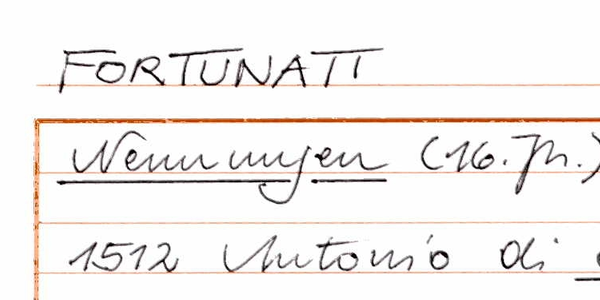 FORTUNATI
Nennungen (16. Jh.)
1512 Antonio di